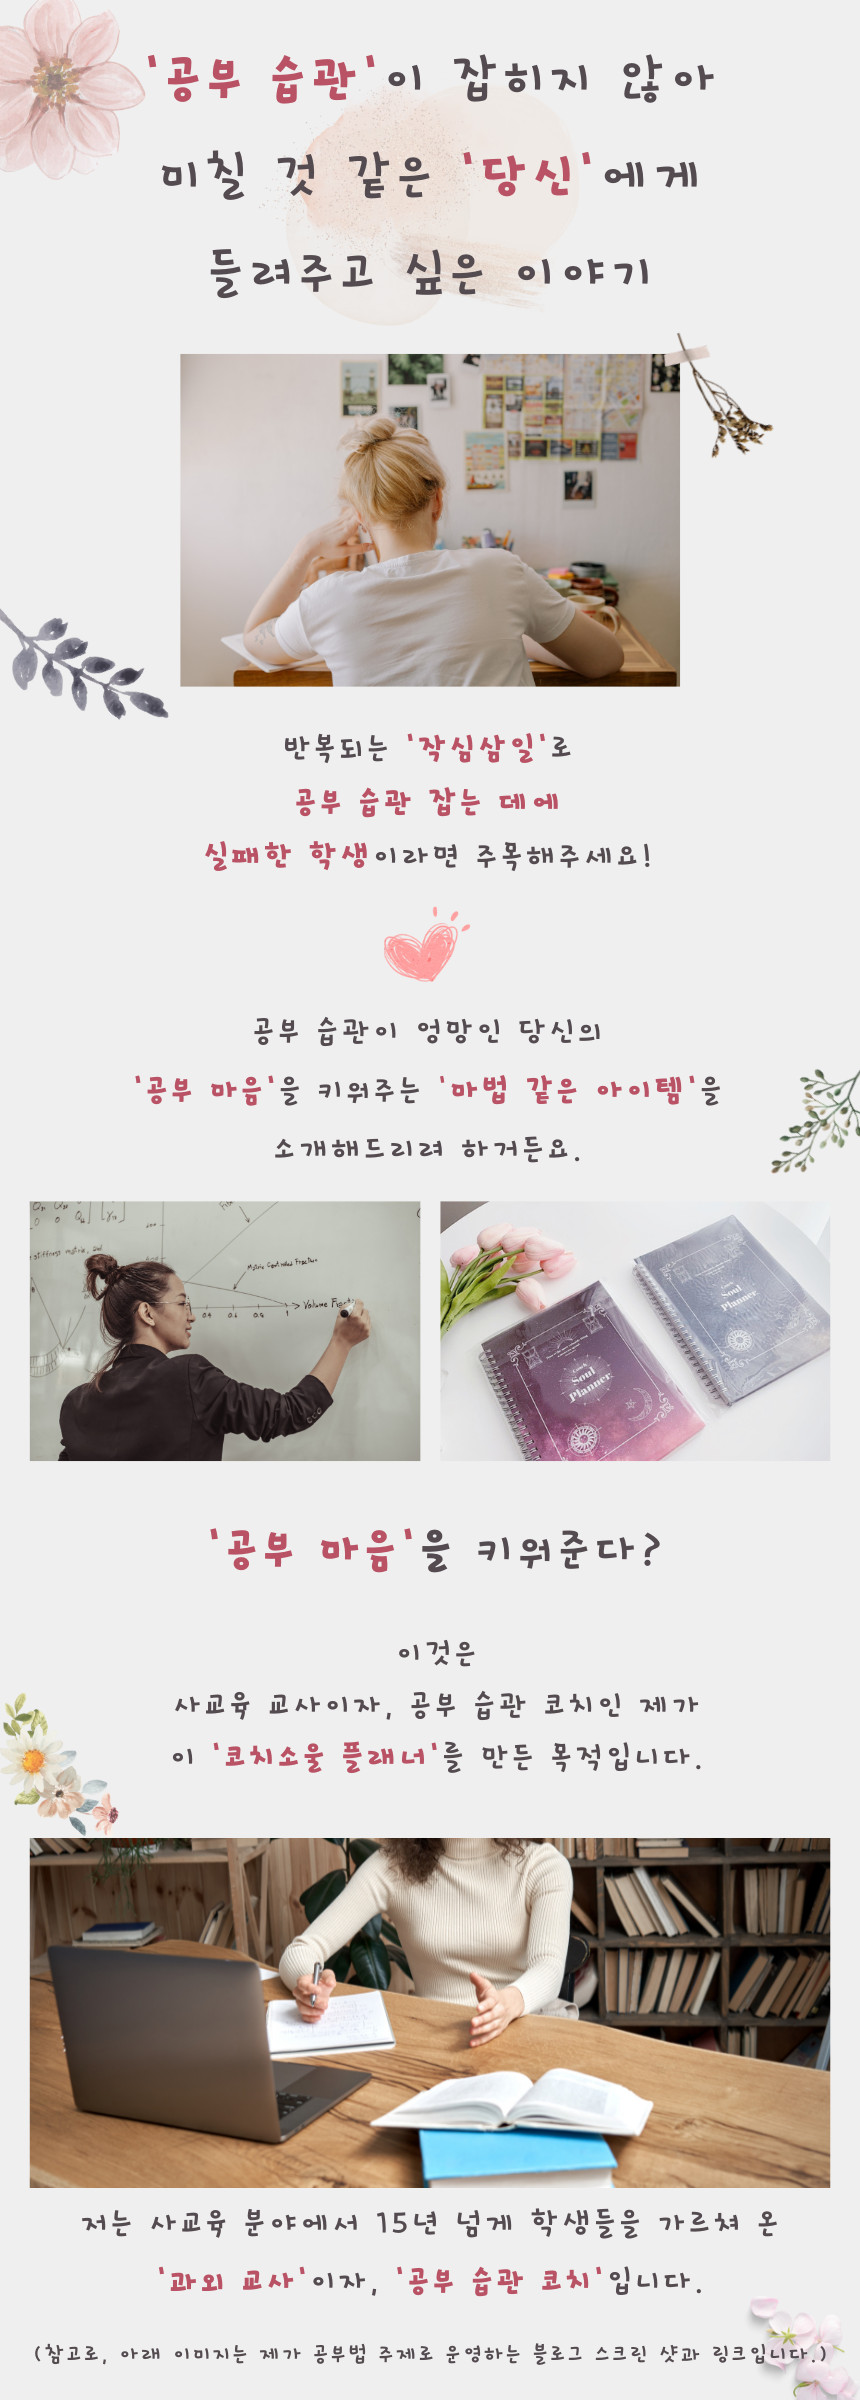 '공부 습관'이 잡히지 않아
미칠 것 같은 '당신'에게
들려주고 싶은 이야기
반복되는 '작심삼일'로
공부 습관 잡는 데에
실패한 학생이라면 주목해주세요!
공부 습관이 엉망인 당신의
'공부 마음'을 키워주는 '마법 같은 아이템'을
소개해드리려 하거든요.
Matrix Controlled Fraction
Volume
0.4 0.6 0.8 1
Soul
Planner
Soul
Planner
'공부 마음'을 키워준다?
이것은
사교육 교사이자, 공부 습관 코치인 제가
이 '코치소울 플래너'를 만든 목적입니다.
저는 사교육 분야에서 15년 넘게 학생들을 가르쳐 온
'과외 교사'이자, '공부 습관 코치'입니다.
(참고로, 아래 이미지는 제가 공부법 주제로 운영하는 블로그 스크린 샷과 링크입니다.)